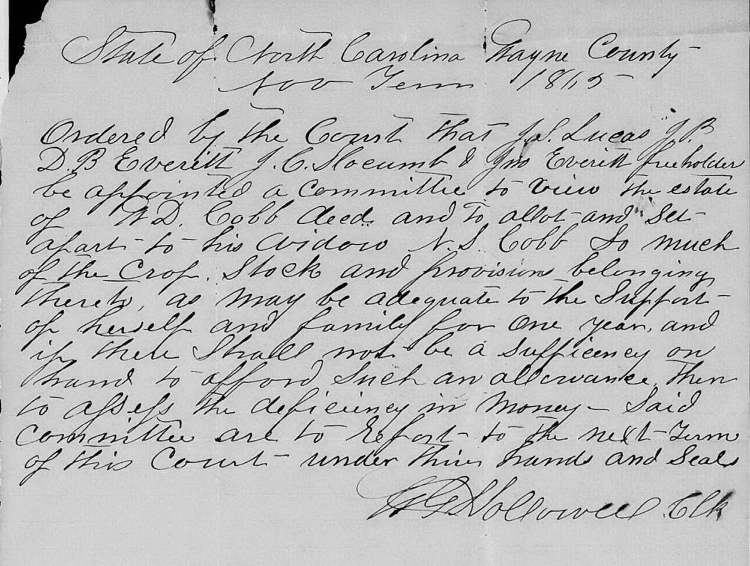 State of North Carolina Wayne County
Nov Term 1865
Ordered by the Court that J. S. Lucas J.P
D. B Everitt J. C. Slocumb & Jno Everitt freeholder
be appointed a committee to view the estate
of W D. Cobb deed and to allot and set
apart to his widow N. S. Cobb so much
of the Crop, Stock and provisions belonging
thereto, as may be adequate to the Support
of herself and family for one year, and
if there Shall not be a sufficency on
hand to afford such an allowance, then
to assess the deficiency in money - Said
Committee are to Report to the next Term
of this Court under thier hands and Seals
W G Hollowell Clk